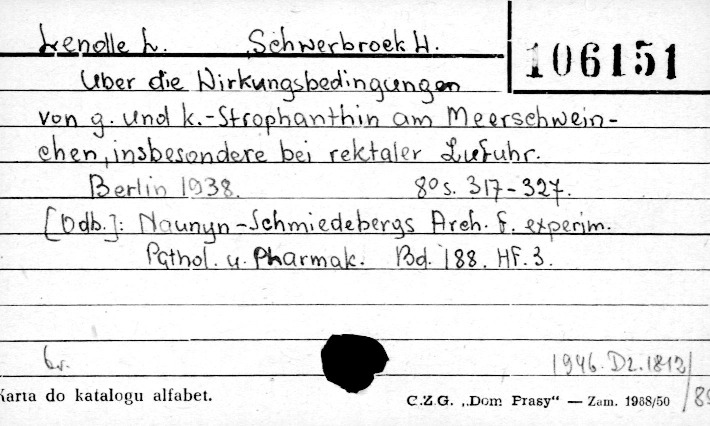 Lendle L. Schwerbroek H. 106151
Über die Wirkungsbedingungen
von g. und k.-Strophanthin am Meerschwein-
chen, insbesondere bei rektaler Zufuhr.
Berlin 1938. 8° s. 317-327.
[Odb.]: Naunyn-Schmiedebergs Arch. f. experim.
Pathol. u. Pharmak. Bd. 188. Hf. 3.
br. 1946. Dz. 1812/
Karta do katalogu alfabet. C.Z.G. „Dom Prasy“ — Zam. 1988/50